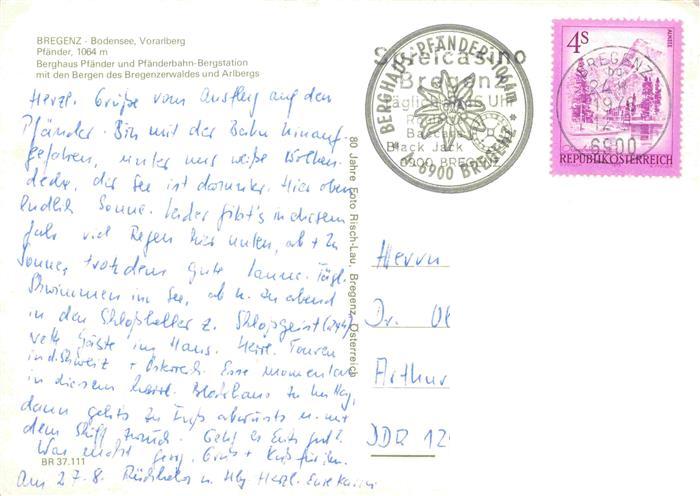 BREGENZ - Bodensee, Vorarlberg
Pfänder, 1064 m
Berghaus Pfänder und Pfänderbahn-Bergstation
mit den Bergen des Bregenzerwaldes und Arlbergs
Herzl. Grüße vom Ausflug auf den
Pfänder. Bin mit der Bahn hinauf-
gefahren, unter uns weiße Wolken-
decke, der See ist darunter. Hier oben
endlich Sonne. Leider gibt's in diesem
Jahr viel Regen hier unten, ab + zu
Sonne, trotzdem gute Laune. Tägl.
Schwimmen im See, ab u. zu abend
in den Schloßkeller z. Schloßgeist
nette Gäste im Haus. Herrl. Touren
in d. Schweiz + Österreich. Esse momentan
in diesem herrl. Berghaus zu Mittag,
dann gehts zu Fuß abwärts u. mit
dem Schiff zurück. Geht es Euch gut?
Was macht
Am 27.8. Rückkehr n. Hbg. Herzl. Eure
BR 37.111
80 Jahre Foto Risch-Lau, Bregenz, Österreich
Spielcasino
Bregenz
täglich ab Uhr
Black Jack
6900 BREGENZ
BERGHAUS-PFÄNDER 1064m
* 6900 BREGENZ *
4S
ALMSEE
BREGENZ
6900
REPUBLIK ÖSTERREICH
Herrn
Dr.
Arthur
DDR 12